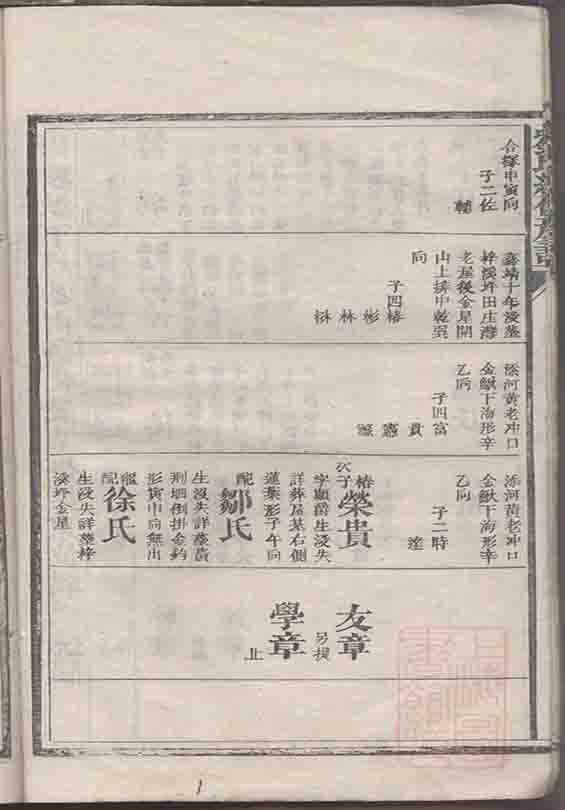 合塚申寅向
子二佐
輔
嘉靖十年没葬
梓溪坪田庄灣
老屋後金星開
山上排中乾巽
向
子四椿
彬
林
添河黄老冲口
金䱇下海形辛
乙向
子四富
貴
憲
添河黄老冲口
金䱇下海形辛
乙向
子二時
達
椿
次子榮貴
字顯爵生没失
詳葬屋基右側
蓮葉形子午向
配鄒氏
生没失詳葬黄
荆堋倒掛金鈎
形寅申向無出
配徐氏
生没失詳葬梓
溪坪金星
友章
另提
學章
止
1